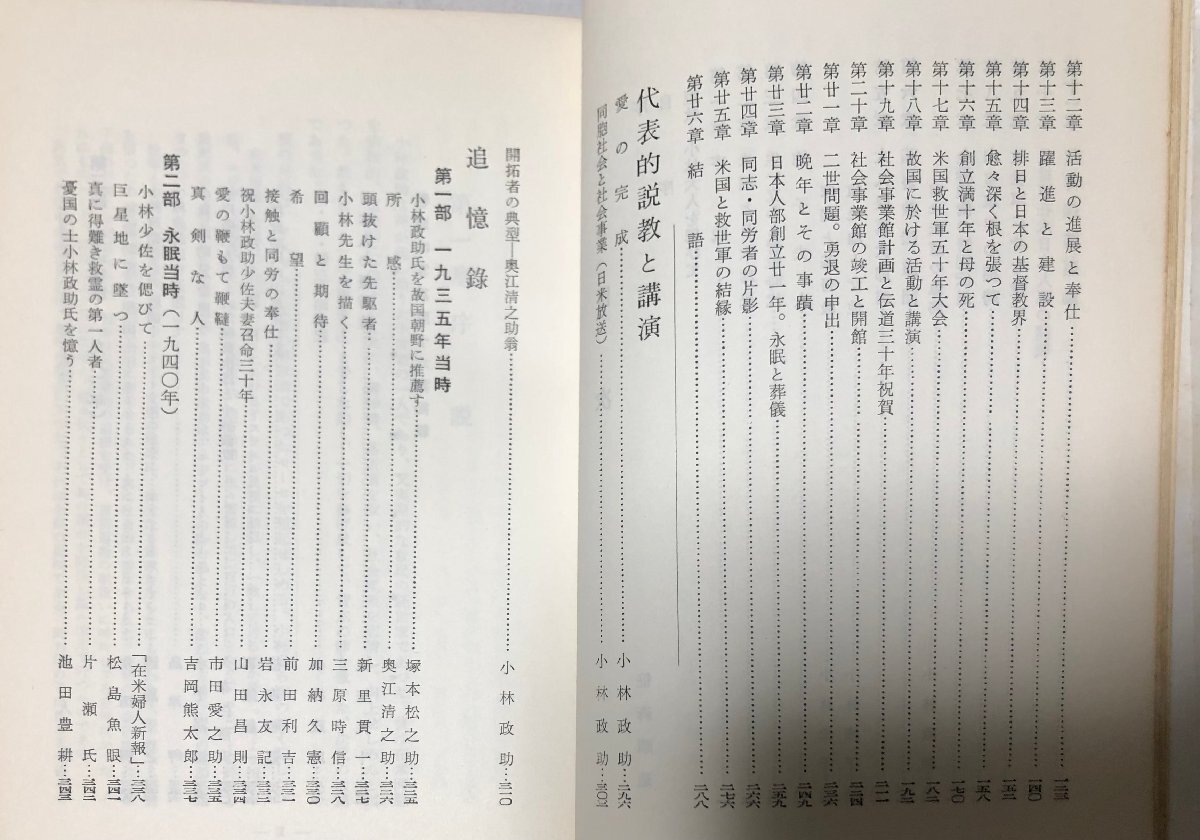 第十二章 活動の進展と奉仕…一二三
第十三章 躍進と建設…一四〇
第十四章 排日と日本の基督教界…一五二
第十五章 愈々深く根を張つて…一五八
第十六章 創立満十年と母の死…一七〇
第十七章 米国救世軍五十年大会…一八二
第十八章 故国に於ける活動と講演…一九二
第十九章 社会事業館計画と伝道三十年祝賀…二一一
第二十章 社会事業館の竣工と開館…二二四
第廿一章 二世問題。勇退の申出…二三六
第廿二章 晩年とその事蹟…二四九
第廿三章 日本人部創立廿一年。永眠と葬儀…二五九
第廿四章 同志・同労者の片影…二六六
第廿五章 米国と救世軍の結縁…二七六
第廿六章 結語…二八八
代表的説教と講演
愛の完成…小林政助…二九六
同胞社会と社会事業(日米放送)…小林政助…三〇三
開拓者の典型―奥江清之助翁…小林政助…三二〇
追憶録
第一部 一九三五年当時
小林政助氏を故国朝野に推薦す…塚本松之助…三二五
所感…奥江清之助…三二六
頭抜けた先駆者…新里貫一…三二七
小林先生を描く…三原時信…三二八
回顧と期待…加納久憲…三三〇
希望…前田利吉…三三一
接触と同労の奉仕…岩永友記…三三二
祝小林政助少佐夫妻召命三十年…山田昌則…三三四
愛の鞭もて鞭韃…市田愛之助…三三五
真剣な人…吉岡熊太郎…三三七
第二部 永眠当時(一九四〇年)
小林少佐を偲びて…「在米婦人新報」…三三八
巨星地に墜つ…松島魚眼…三四一
真に得難き救霊の第一人者…片瀬氏…三四二
憂国の士小林政助氏を憶う…池田豊耕…三四三